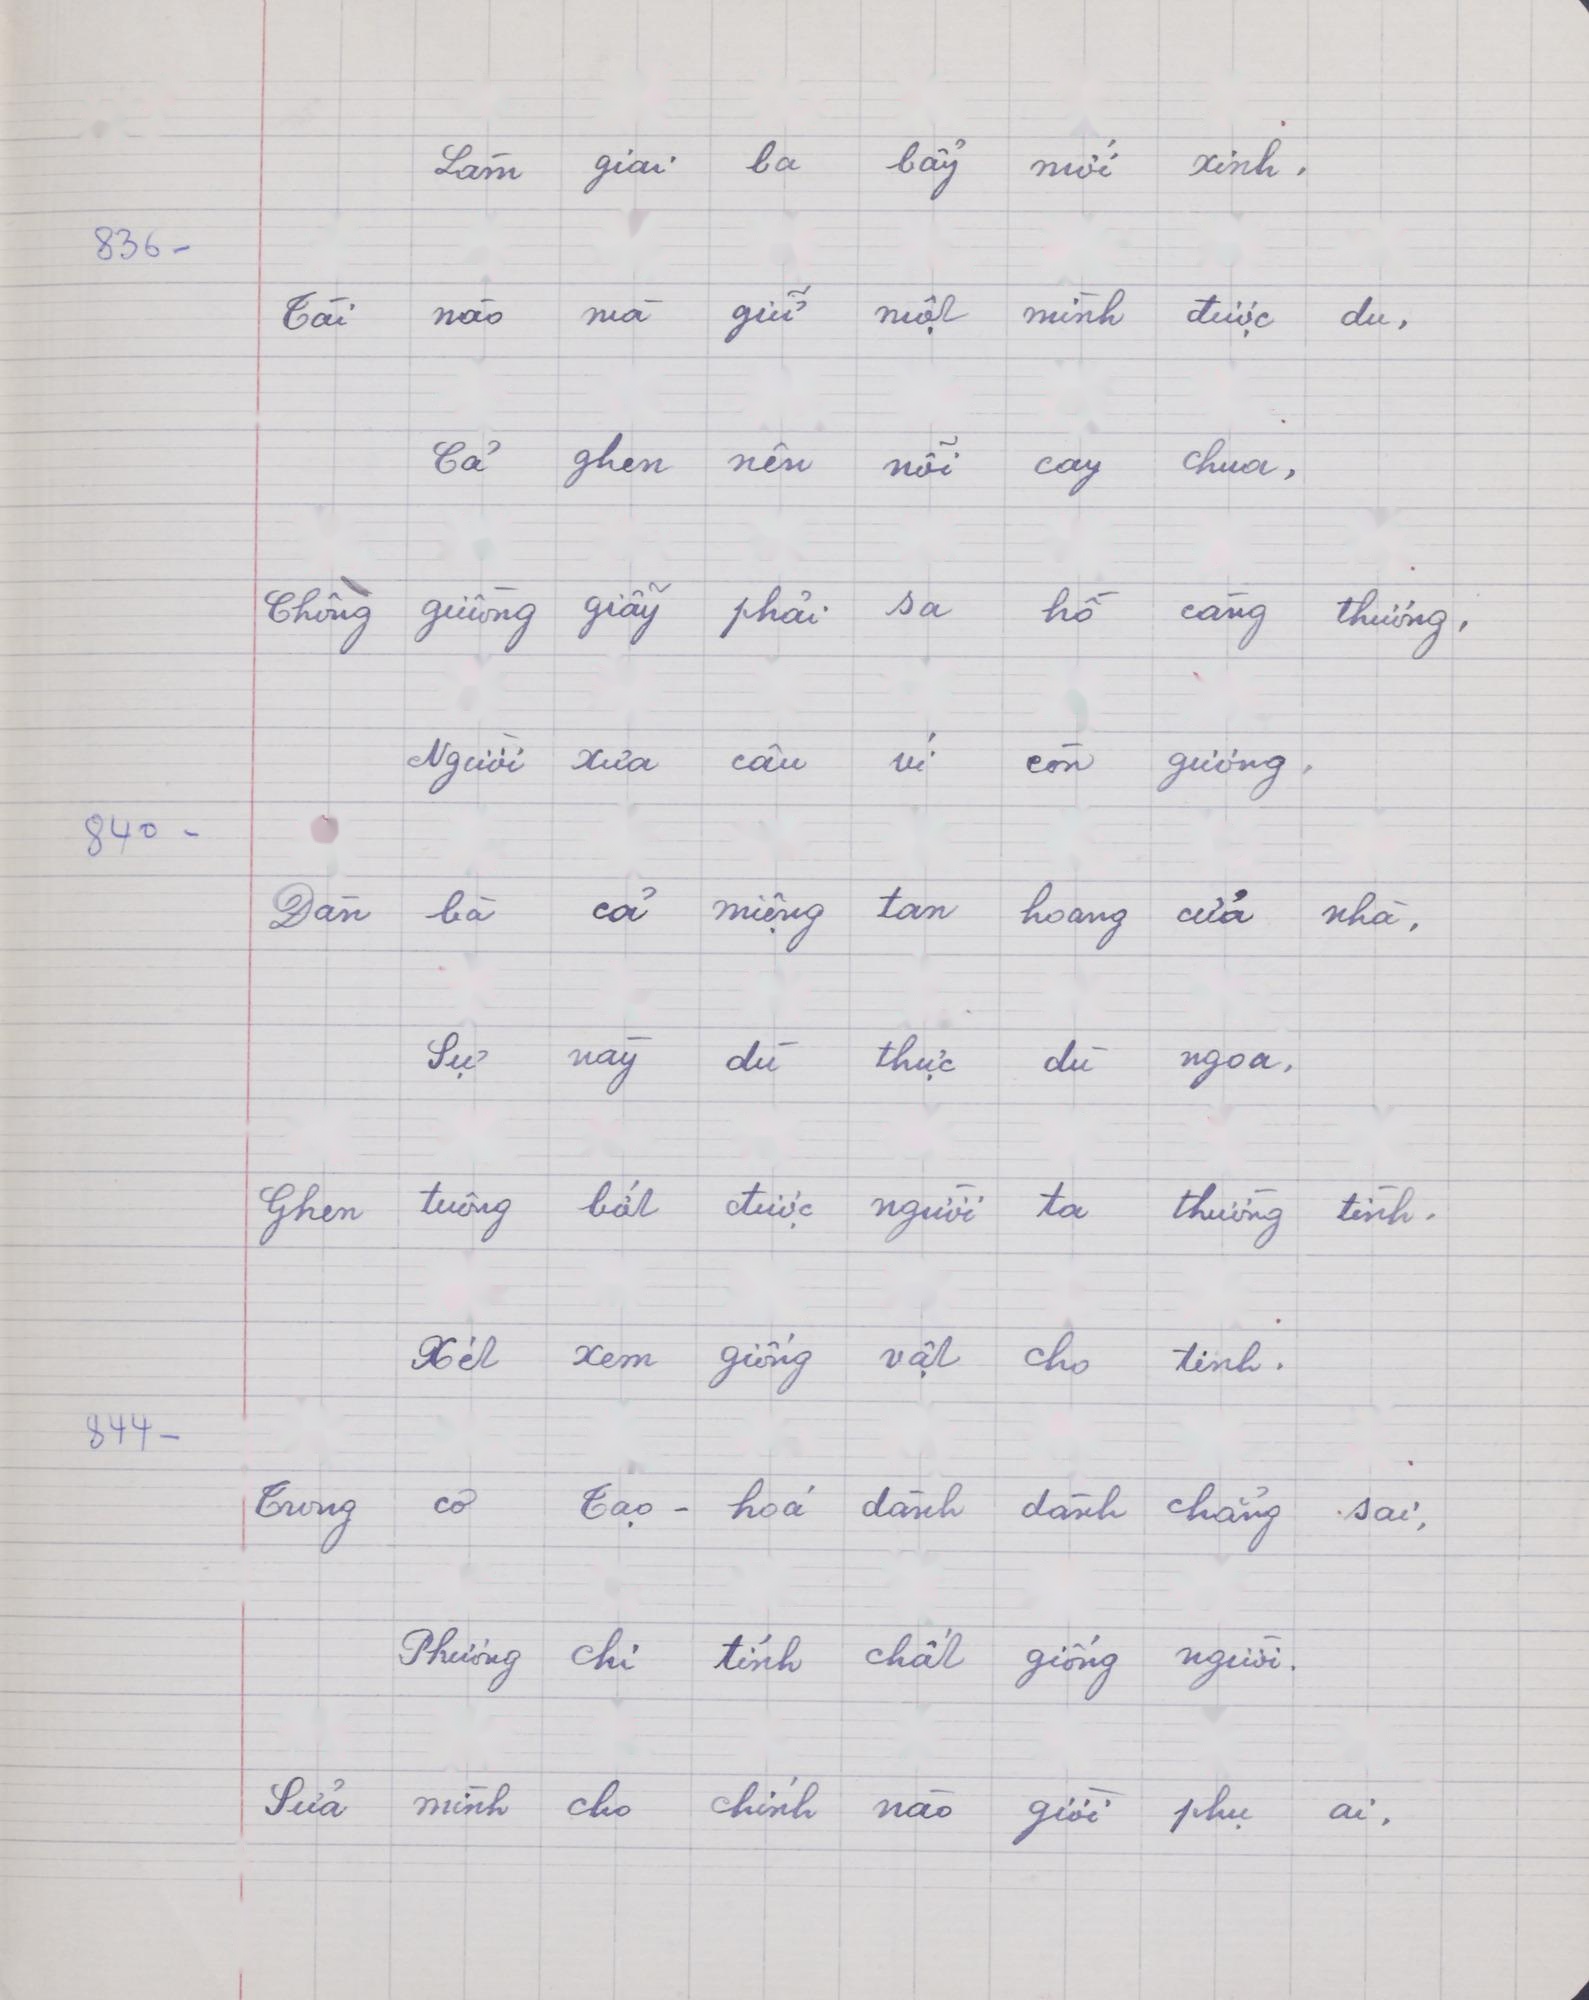 Làm giai ba bẩy mới xinh.
836-
Tài nào mà giữ một mình được du,
Cả ghen nên nỗi cay chua,
Chồng giường giẫy phải sa hố càng thương,
Người xưa câu ví còn gương.
840 -
Đàn bà cả miệng tan hoang cửa nhà,
Sự này dù thực dù ngoa,
Ghen tuông bắt được người ta thường tình.
Xét xem giống vật cho tinh.
844-
Trong cơ Tạo - hoá dành dành chẳng sai,
Phương chi tính chất giống người.
Sửa mình cho chính nào giời phụ ai,